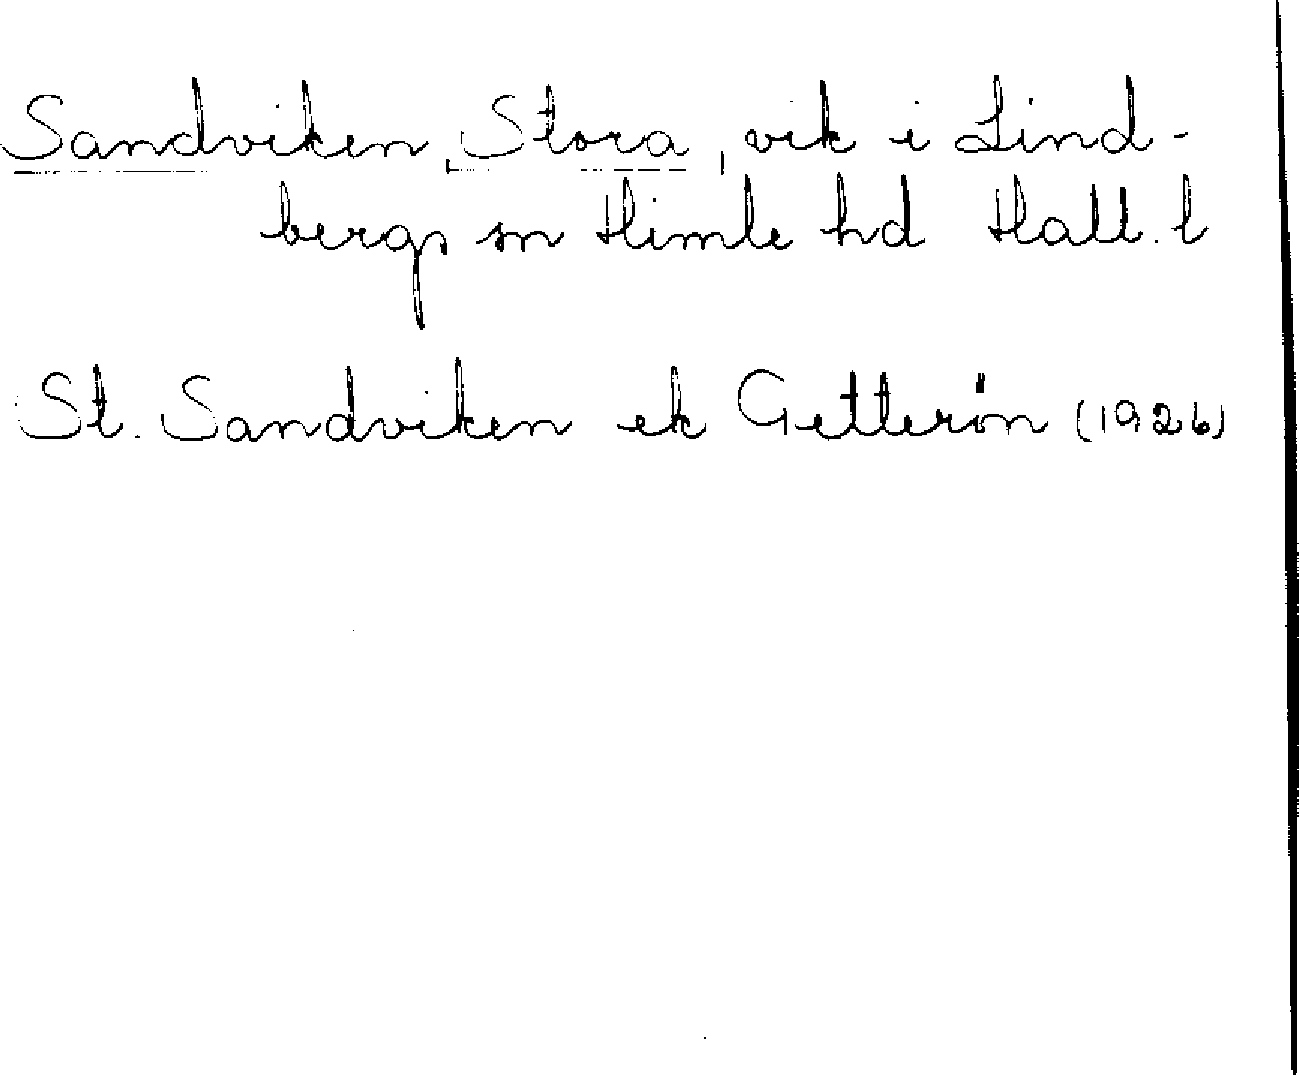 Sandviken, Stora, vik i Lind-
bergs sn Himle hd Hall. l
St. Sandviken ek Getterön (1926)